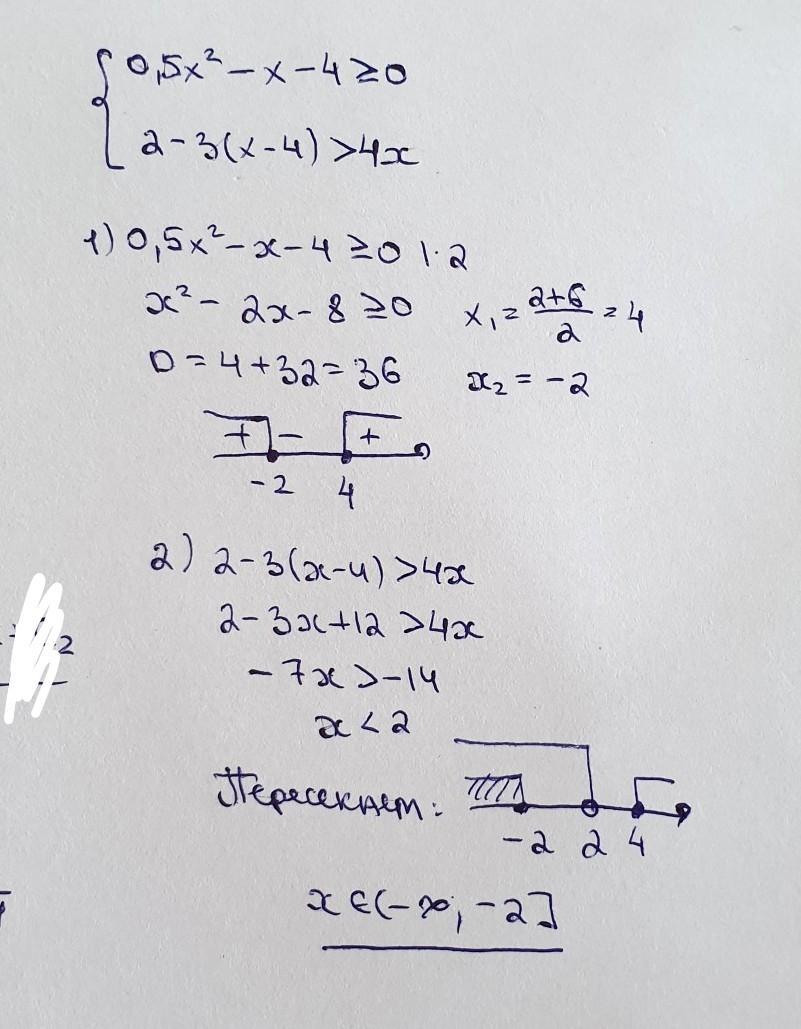 0,5x² - x - 4 ≥ 0
2 - 3(x-4) > 4x
1) 0,5x² - x - 4 ≥ 0 |·2
x² - 2x - 8 ≥ 0
x₁ = (2+6)/2 = 4
D = 4 + 32 = 36
x₂ = -2
+ - +
-2 4
2) 2 - 3(x-4) > 4x
2 - 3x + 12 > 4x
- 7x > -14
x < 2
Пересекаем:
-2 2 4
x ∈ (-∞; -2]